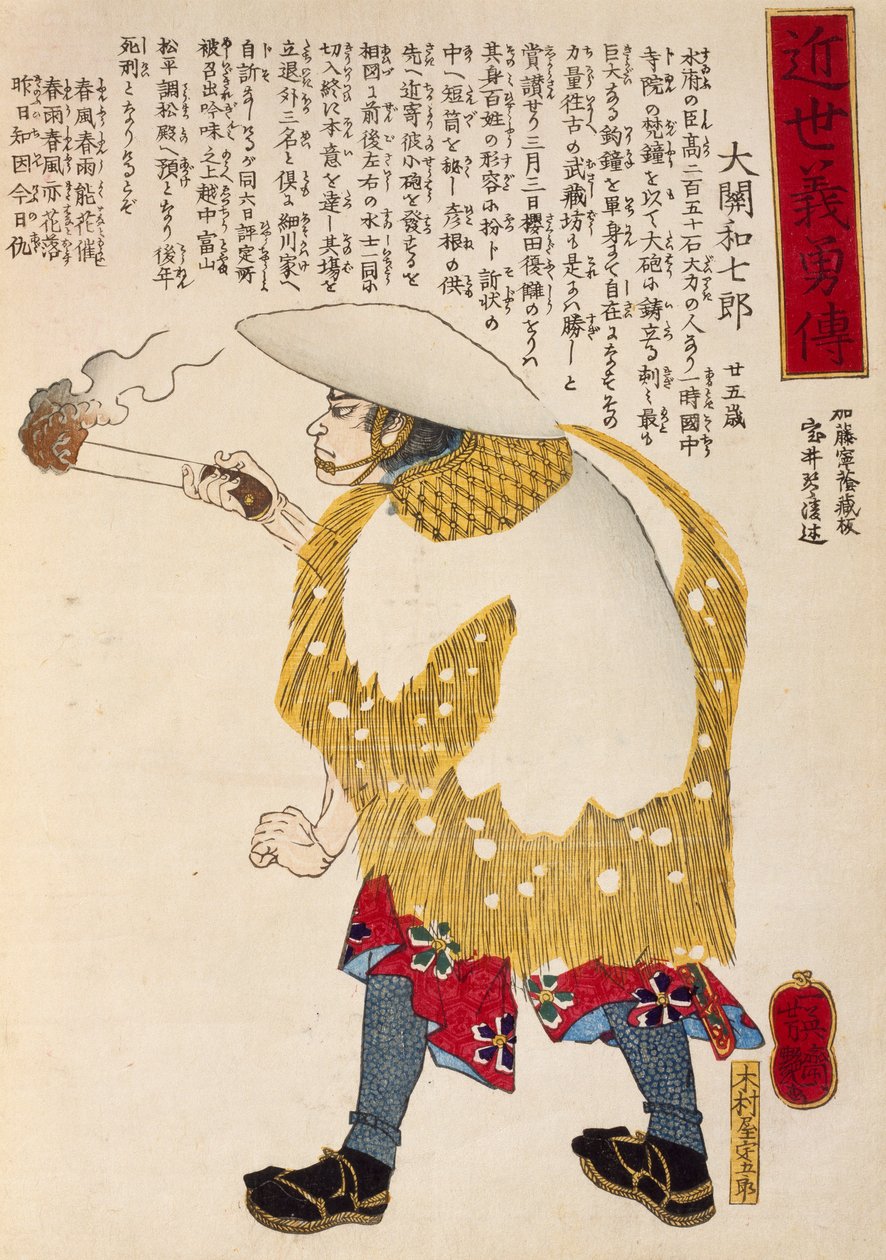 近世義勇傳
大關和七郎 廿五歳
水府の臣髙二百五十石大力の人なり一時國中
寺院の梵鐘を以て大砲に鋳立る刺ミ最も
巨大なる釣鐘を單身にて自在になすその
力量徃古の武藏坊も是にハ勝しと
賞讃せり三月三日櫻田復讐のをりハ
其身百姓の形容に扮ト訴状の
中へ短筒を秘し彦根の供
先へ近寄彼小砲を發するを
相図に前後左右の水士一同に
切入終に本意を達し其場を
立退外三名と倶に細川家へ
自訴なしけるが同六日評定所へ
被召出吟味之上越中富山
松平調松殿へ預となり後年
死刑となりけるとぞ
春風春雨能花催
春雨春風亦花落
昨日知因今日仇
加藤寧蔭藏板
宝井琴凌述
一英齋
芳艶画
木村屋宗五郎